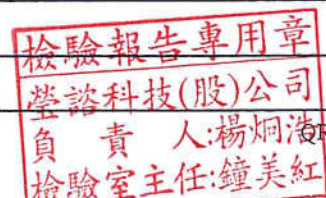 檢驗報告專用章
瑩諮科技(股)公司
負責人:楊烱浩
QR
檢驗室主任:鐘美紅